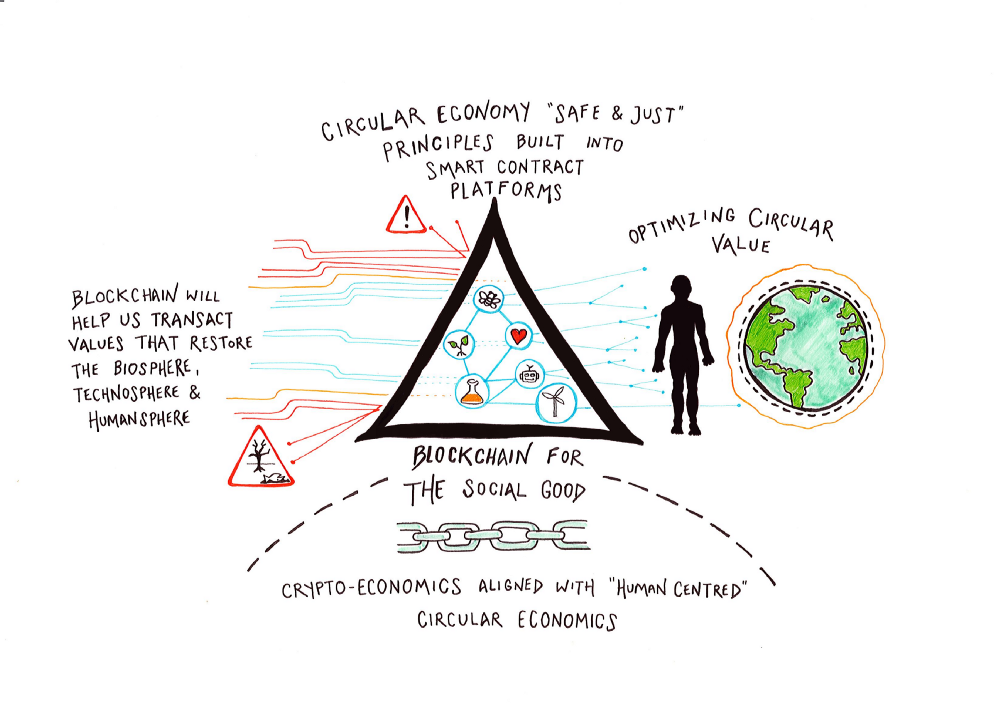 CIRCULAR ECONOMY "SAFE & JUST"
PRINCIPLES BUILT INTO
SMART CONTRACT
PLATFORMS
!
OPTIMIZING CIRCULAR
VALUE
BLOCKCHAIN WILL
HELP US TRANSACT
VALUES THAT RESTORE
THE BIOSPHERE,
TECHNOSPHERE &
HUMANSPHERE
BLOCKCHAIN FOR
THE SOCIAL GOOD
CRYPTO-ECONOMICS ALIGNED WITH "HUMAN CENTRED"
CIRCULAR ECONOMICS